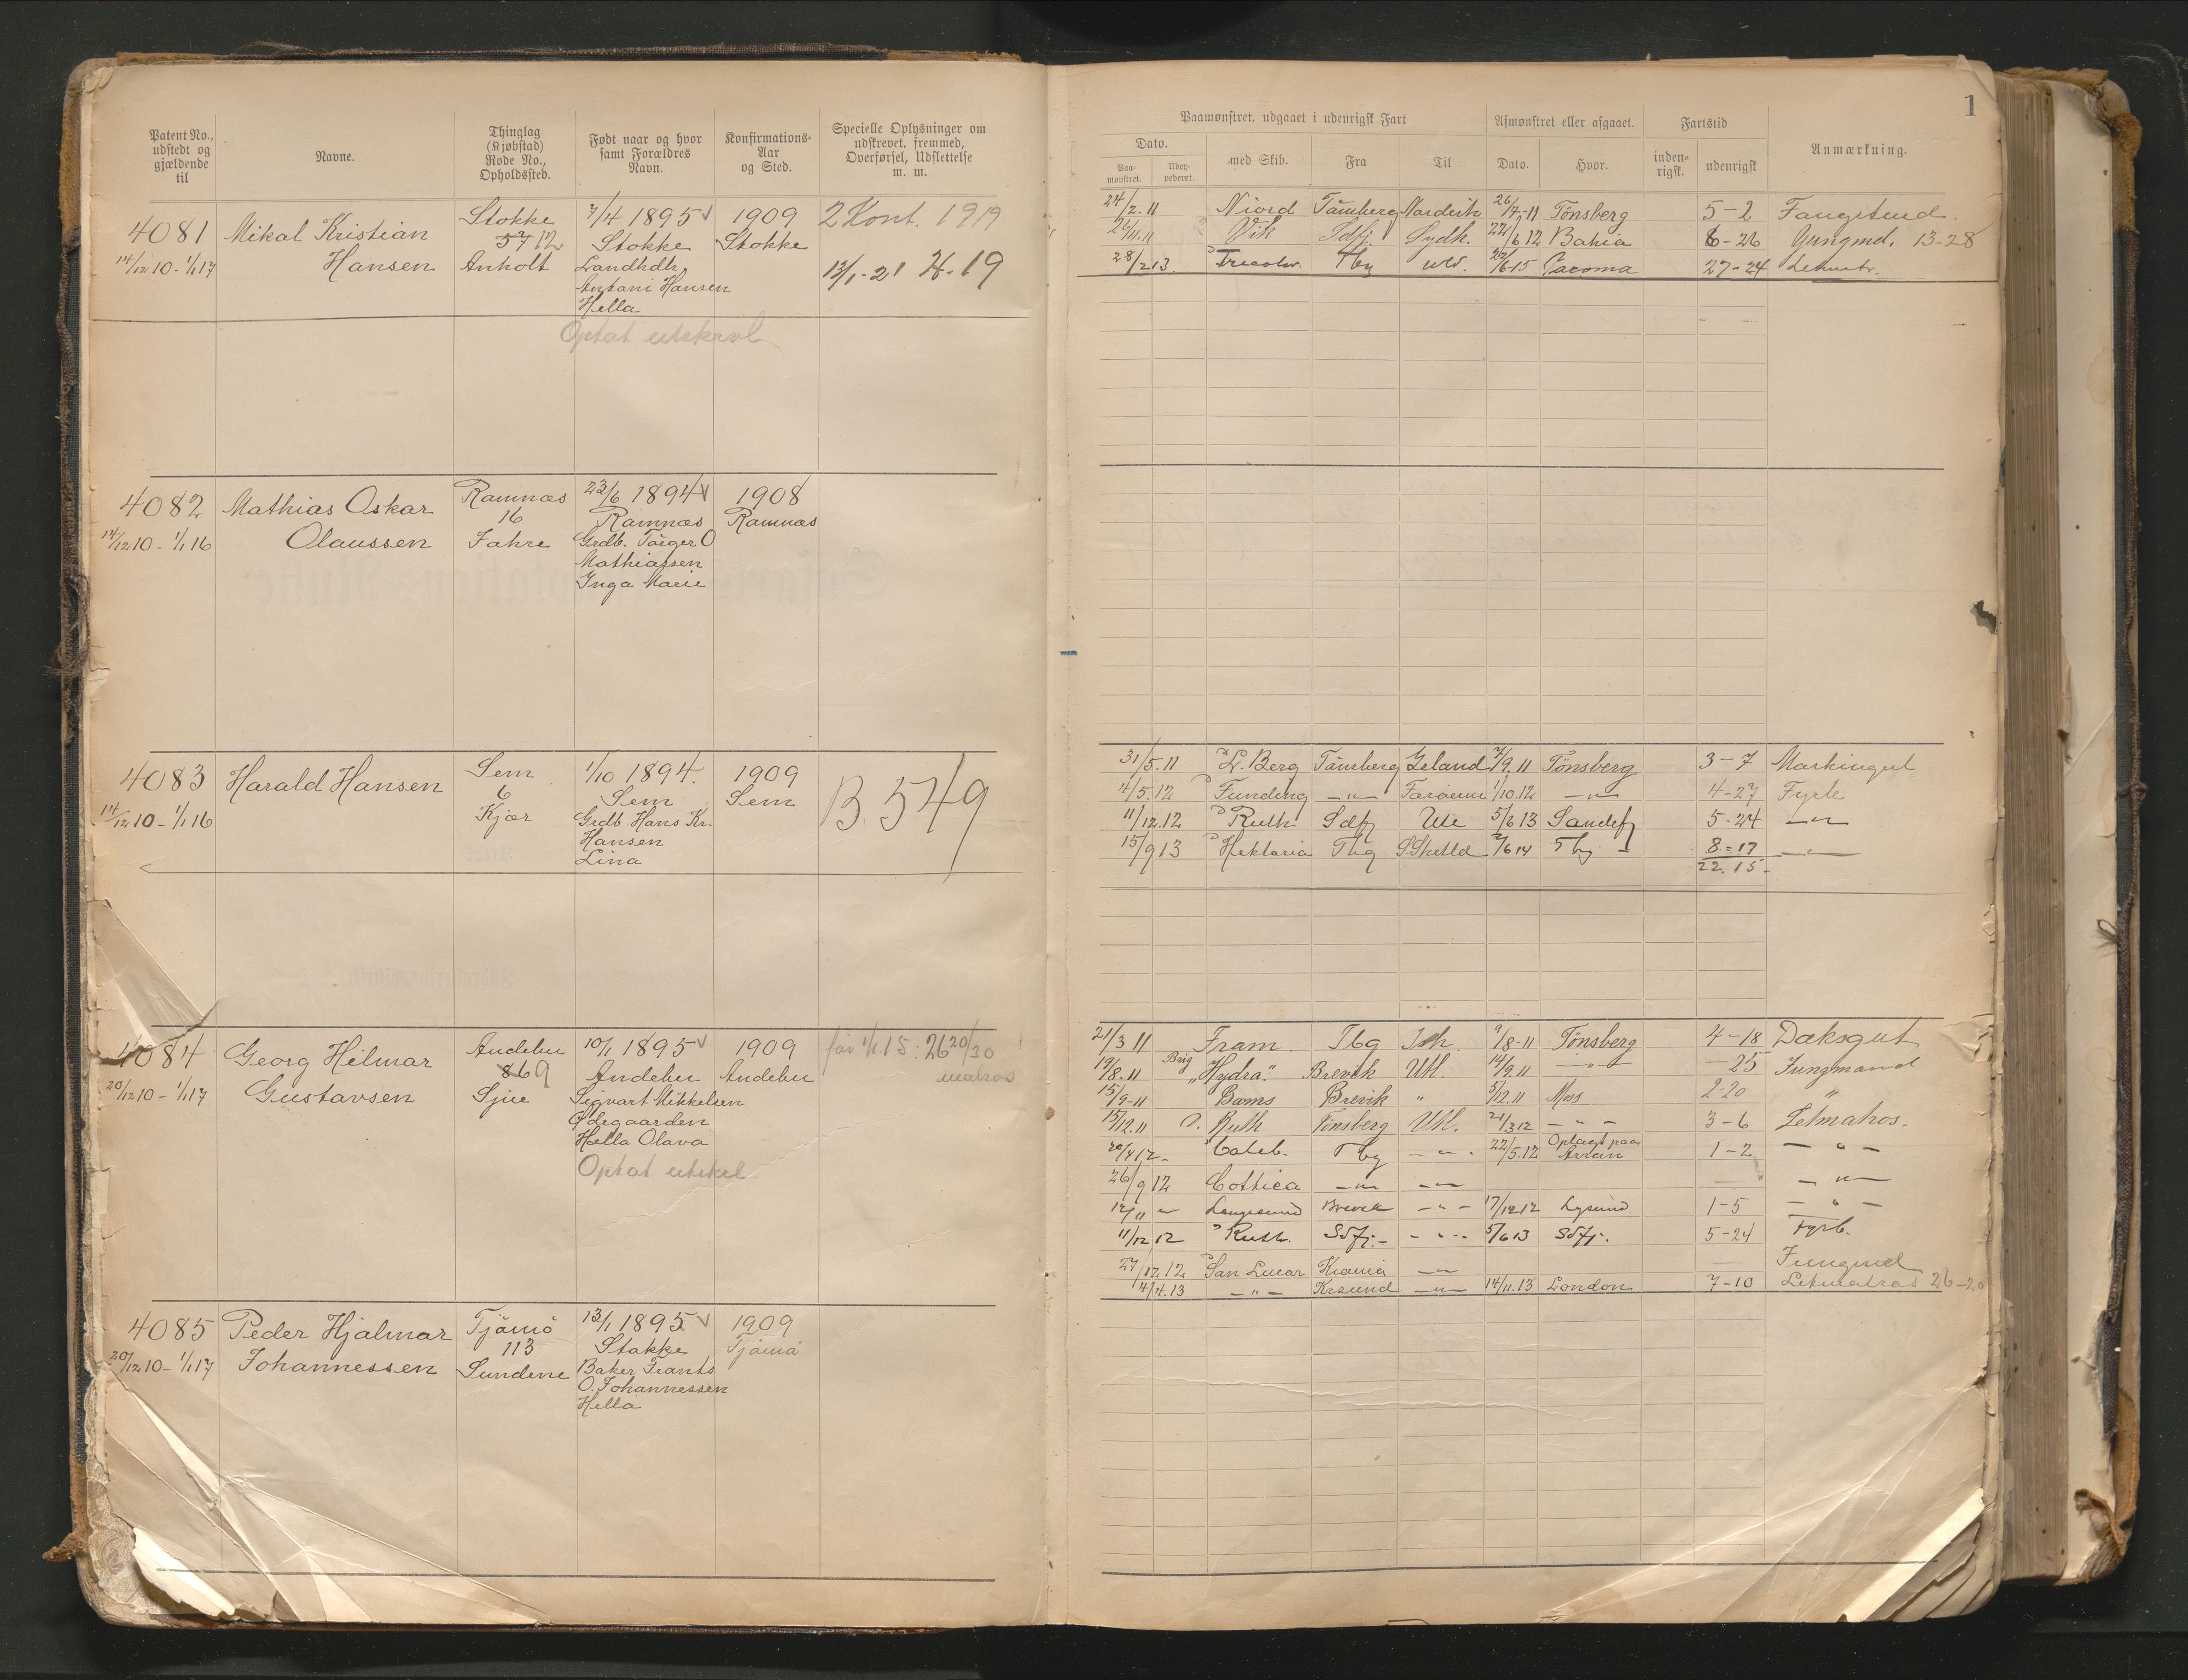 Patent No., udstedt og gjældende til
Navne.
Thinglag (Kjøbstad) Rode No., Opholdssted.
Født naar og hvor samt Forældres Navn.
Konfirmations-Aar og Sted.
Specielle Oplysninger om udskrevet, fremmed, Overførsel, Udslettelse m. m.
4081
14/12 10 - 1/1 17
Mikal Kristian
Hansen
Stokke
57 12
Anholt
7/4 1895 v
Stokke
Landhdlr.
Antoni Hansen
Hella
1909
Stokke
2 Kont. 1919
12/1-21 H. 19
Optat utskrevl
4082
14/12 10 - 1/1 16
Mathias Oskar
Olaussen
Ramnæs
16
Fahre
23/6 1894 v
Ramnæs
Grdb. Torger O
Mathiassen
Inga Marie
1908
Ramnæs
4083
14/12 10 - 1/1 16
Harald Hansen
Sem
6
Kjær
1/10 1894.
Sem
Grdb. Hans Kr.
Hansen
Lina
1909
Sem
B 549
4084
20/12 10 - 1/1 17
Georg Hilmar
Gustavsen
Andebu
86 9
Sjue
10/1 1895 v
Andebu
Segvart Mikkelsen
Ødegaarden
Hella Olava
1909
Andebu
før 1/1.15: 26 20/30
matros
Optat utskrl
4085
20/12 10 - 1/1 17
Peder Hjalmar
Johannessen
Tjømø
113
Sundene
13/1 1895 v
Stokke
Baker Frants
O. Johannessen
Hella
1909
Tjømø
1
Paamønstret, udgaaet i udenrigsk Fart
Afmønstret eller afgaaet.
Fartstid
Anmærkning.
Dato.
Paa-mønstret.
Udex-pederet.
med Skib.
Fra
Til
Dato.
Hvor.
inden-rigsk.
udenrigsk
24/2.11 Niord Tönsberg Nordish 26/7-11 Tönsberg 5-2 Fangstmd.
26/11.11 Vik Sdfj. Sydh. 22/6 12 Bahia 6-26 Yungmd. 13-28
28/2 13. Tbg utl. Tacoma 27-24 Letmatr.
31/5.11 L. Berg Tönsberg Island 7/9.11 Tönsberg 3-7 Maskingut
4/5.12 Funding -"- Færøerne 1/10.12 -"- 4-27 Fyrb.
11/12.12 Ruth Sdfj Ute 5/6 13 Sandefj 5-24 -"-
15/9 13 Hektoria Tbg S.Shetld 2/6 14 Tbg 8-17 -"-
22.15-
21/3 11 Fram. Tbg Ish. 9/8-11 Tönsberg 4-18 Dæksgut
19/8.11 Brig "Hydra". Brevik Utl. 14/9.11 -"- -25 Jungmand
15/9-11 Brevik " 5/12.11 Moss 2-20 "
15/12.11 D. Ruth Tönsberg Utl. 21/3 12 -"- 3-6 Letmatros.
20/4 12- Caleb. Tbg -"- 22/5.12 Oplagt paa Arran 1-2 -"-
26/9 12 Cottica -"- -"- -"-
12/11 " Langesund Brevik -"- 17/12 12 Lysund 1-5 -"-
11/12 12 Ruth. Sdfj.- -"- 5/6 13 Sdfj. 5-24 Fyrb.
27/12 12 San Lucar Krania -"- Jungmd
4/4.13 -"- Krsund -"- 14/11.13 London 7-10 Letmatros 26-20